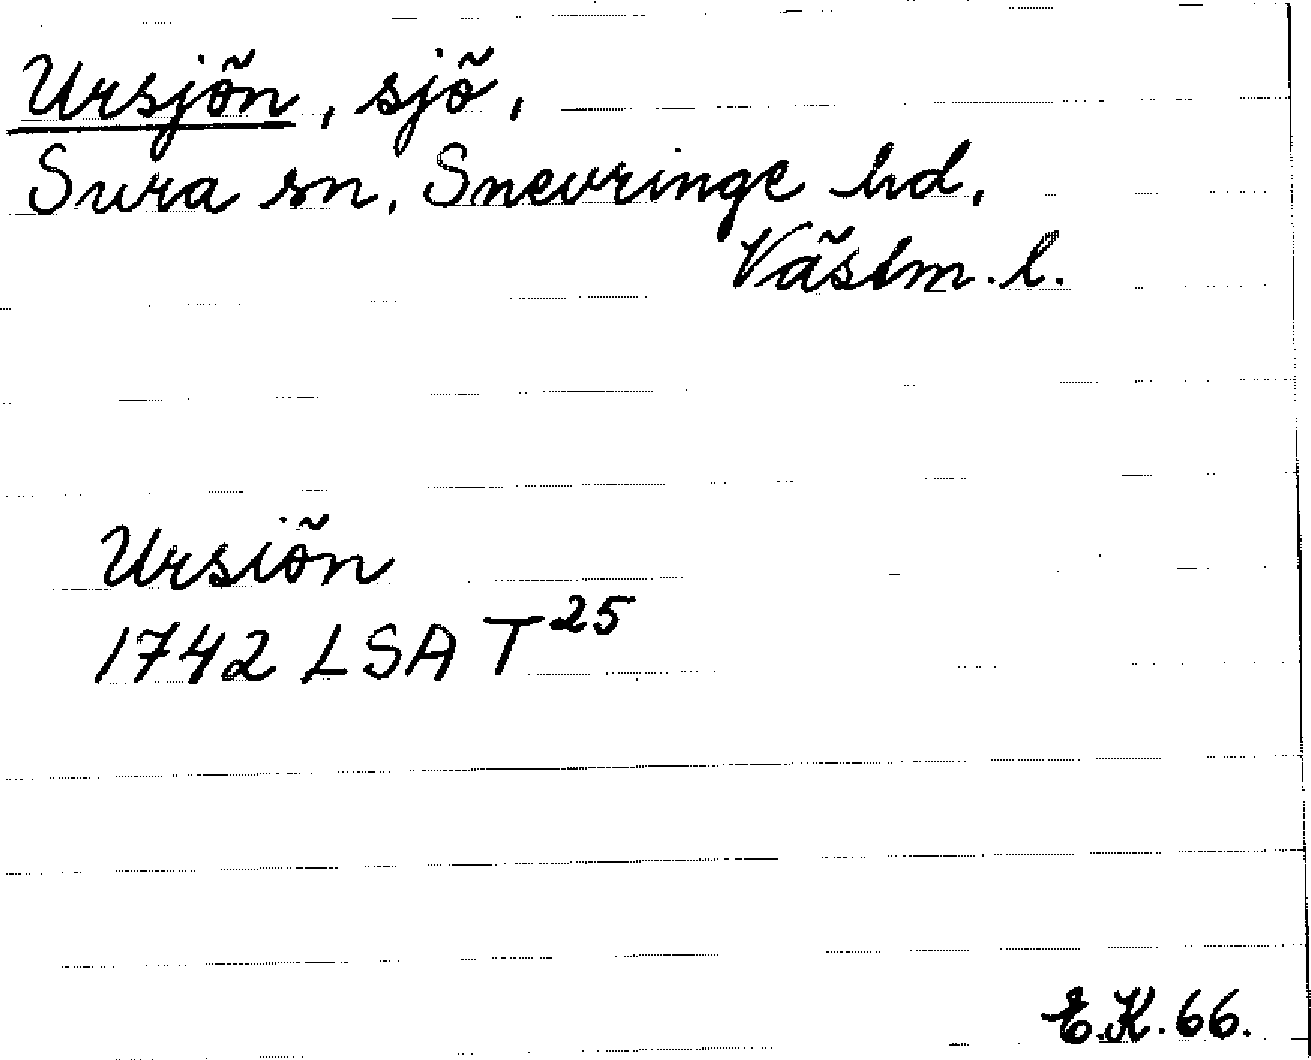 Ursjön, sjö,
Sura sn, Snevringe hd,
Västm. l.
Ursiön
1742 LSA T25
E.K. 66.